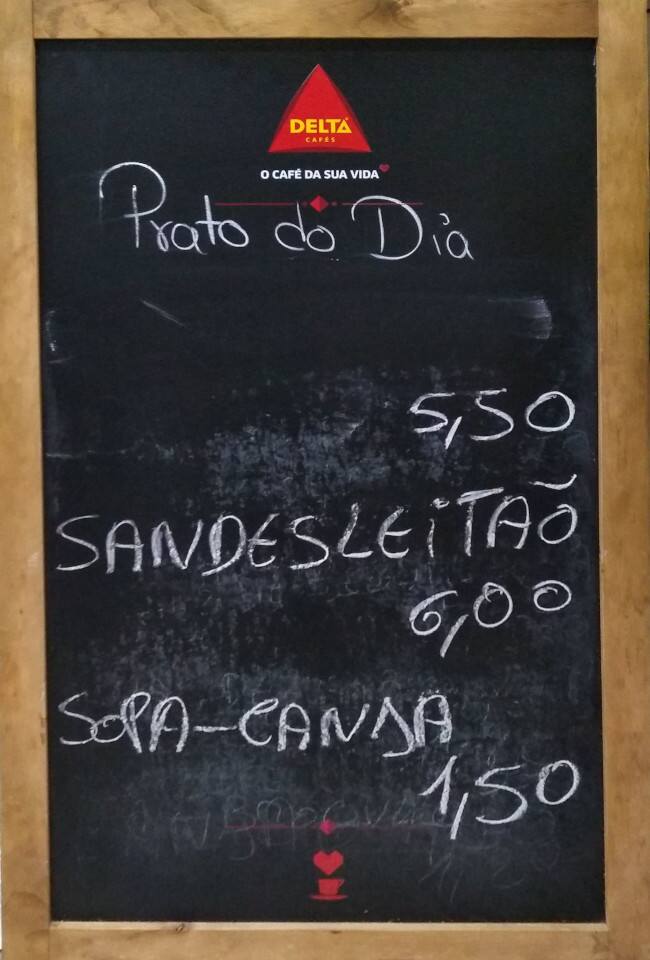 DELTA
CAFÉS
O CAFÉ DA SUA VIDA
Prato do Dia
5,50
SANDESLEiTAÕ
6,00
SOPA-CANJA
1,50